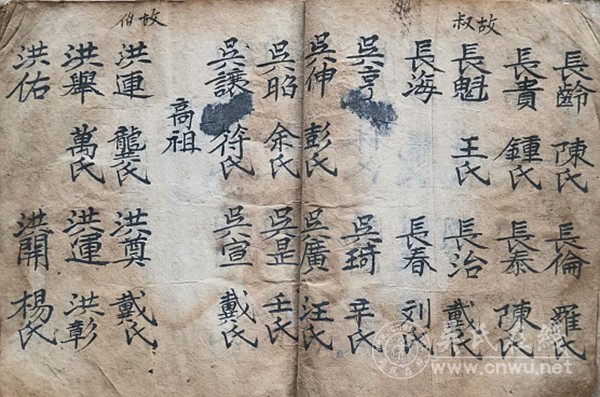 故叔
長齡 陳氏 長倫 羅氏
長貴 鍾氏 長泰 陳氏
長魁 王氏 長治 戴氏
長海 長春 刘氏
吳亨 吳琦 辛氏
吳伸 彭氏 吳廣 汪氏
吳昭 余氏 吳是 壬氏
吳讓 符氏 吳宣 戴氏
高祖
故伯
洪連 龔氏 洪奠 戴氏
洪舉 萬氏 洪運 洪彰
洪佑 洪開 楊氏
www.cnwu.net